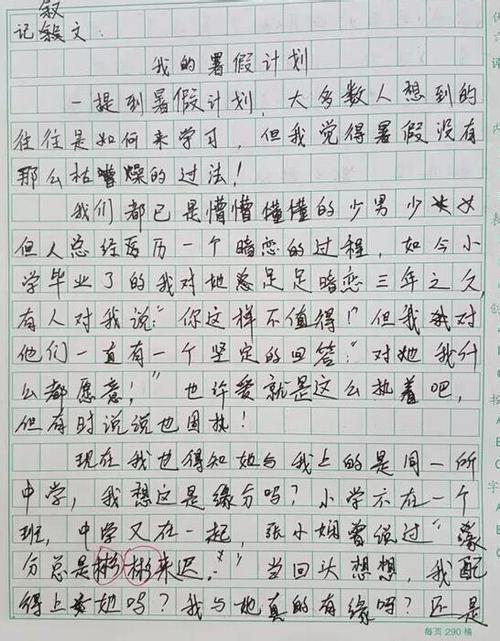 叙
记叙文:
我的暑假计划
一提到暑假计划，大多数人想到的
往往是如何来学习，但我觉得暑假没有
那么枯燥的过法！
我们都已是懵懵懂懂的少男少女
但人总经历一个暗恋的过程，如今小
学毕业了的我对她足足暗恋三年之久,
有人对我说:“你这样不值得！”但我对
他们一直有一个坚定的回答:“对她我什
么都愿意！”也许爱就是这么执着吧,
但有时说说也固执！
现在我也得知她与我上的是同一所
中学，我想这是缘分吗？小学不在一个
班，中学又在一起，张小娴曾说过“缘
分总是彬彬来迟.”当回头想想，我配
得上她吗？我与她真的有缘吗？还是
每页 290 格